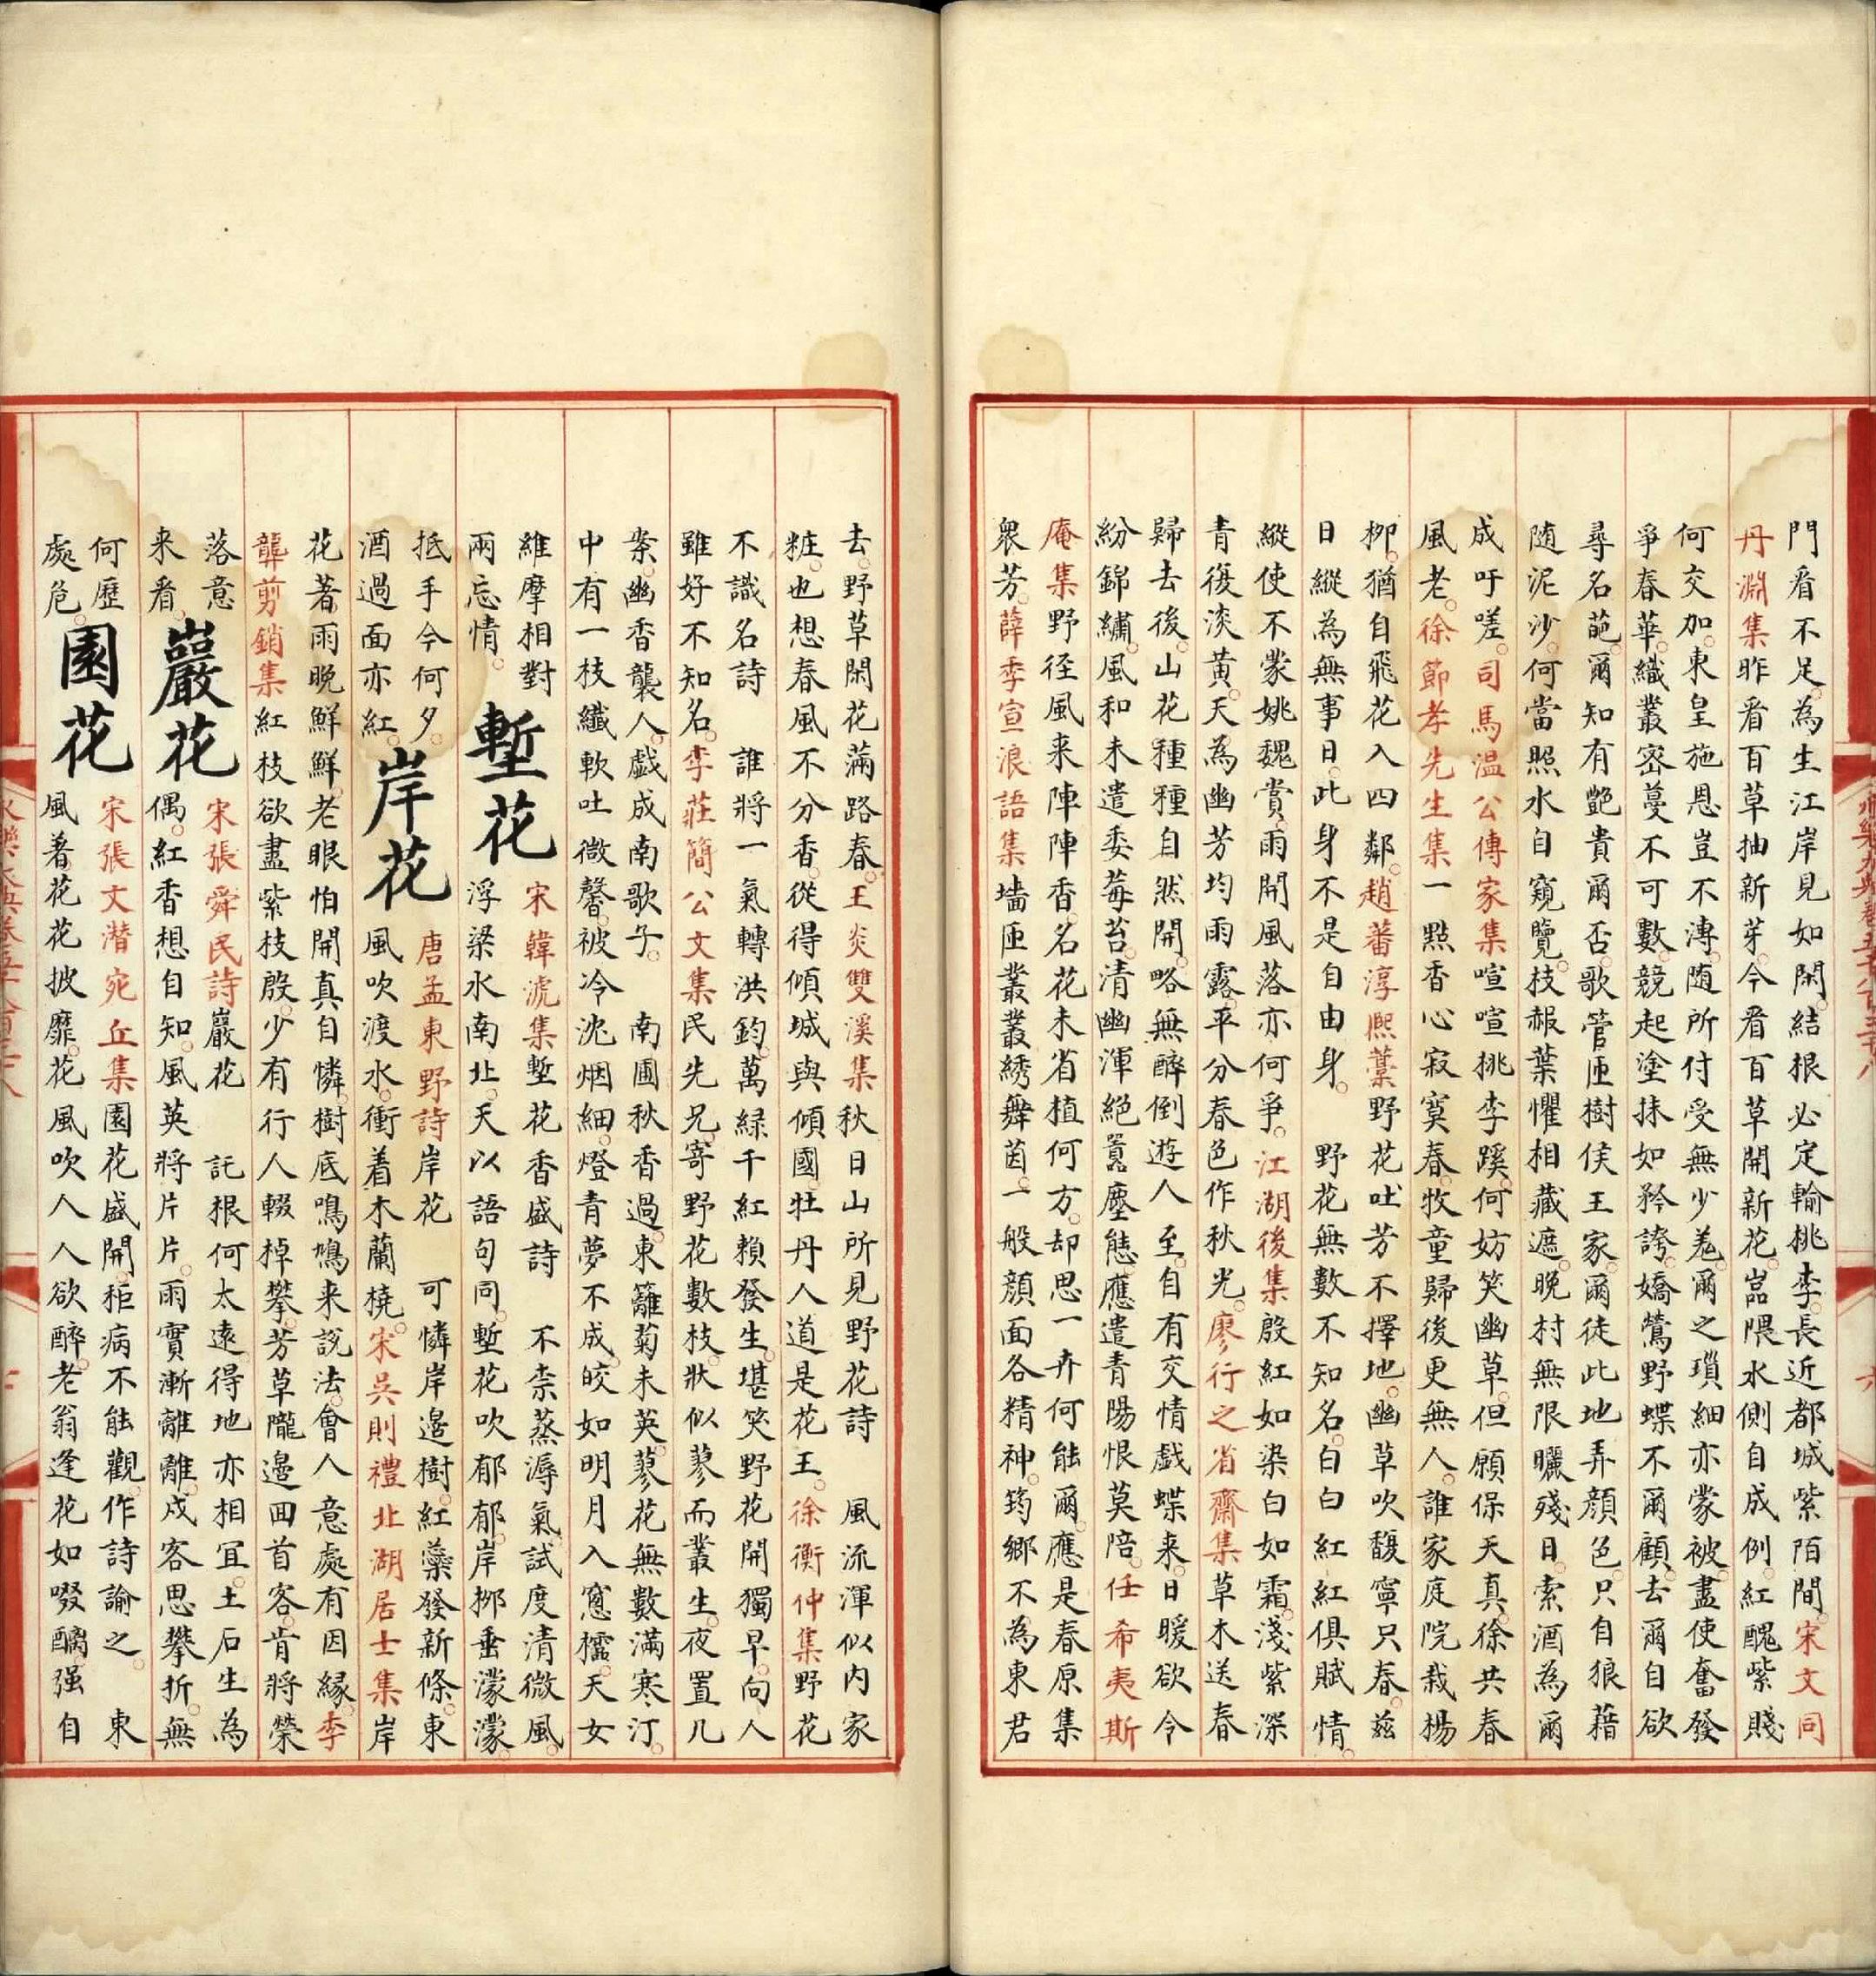 門看不足為生江岸見如閑結根必定輸桃李長近都城紫陌間宋文同
丹淵集昨看百草抽新芽今看百草開新花嵓隈水側自成例紅醜紫賤
何交加東皇施恩豈不溥随所付受無少羗爾之瑣細亦蒙被盡使奮發
爭春華纎叢密蔓不可數競起塗抹如矜誇嬌鶯野蝶不爾顧去爾自欲
尋名葩爾知有艷貴爾否歌管匝樹侯王家爾徒此地弄顔色只自狼藉
随泥沙何當照水自窺覽枝赧葉懼相藏遮晚村無限曬殘日索酒為爾
成吁嗟司馬温公傳家集喧喧桃李蹊何妨笑幽草但願保天真徐共春
風老徐節孝先生集一㸃香心寂寞春牧童歸後更無人誰家庭院栽楊
柳猶自飛花入四鄰趙蕃淳熈藁野花吐芳不擇地幽草吹馥寧只春兹
日縱為無事日此身不是自由身 野花無數不知名白白紅紅俱賦情
縱使不蒙姚魏賞雨開風落亦何爭江湖後集殷紅如染白如霜淺紫深
青復淡黄天為幽芳均雨露平分春色作秋光廖行之省齋集草木送春
歸去後山花種種自然開略無醉倒遊人至自有交情戲蝶来日暖欲今
紛錦繡風和未遣委莓苔清幽渾絕嚣塵態應遣青陽恨莫陪任希夷斯
庵集野径風来陣陣香名花未省植何方却思一卉何能爾應是春原集
衆芳薛季宣浪語集墻匝叢叢綉舞茵一般顔面各精神筠鄉不為東君
去野草閑花滿路春王炎雙溪集秋日山所見野花詩 風流渾似内家
粧也想春風不分香從得傾城與傾國牡丹人道是花王徐衡仲集野花
不識名詩 誰將一氣轉洪鈞萬緑千紅賴發生堪笑野花開獨早向人
雖好不知名李莊簡公文集民先兄寄野花數枝狀似蓼而叢生夜置几
案幽香襲人戯成南歌子 南圃秋香過東籬菊未英蓼花無數滿寒汀
中有一枝纎軟吐微馨被冷沈烟細燈青夢不成皎如明月入窻欞天女
維摩相對
兩忘情
塹花
宋韓淲集塹花香盛詩 不柰蒸溽氣試度清微風
浮梁水南北天以語句同塹花吹郁郁岸桞垂濛濛
抵手今何夕
酒過面亦紅
岸花
唐孟東野詩岸花 可憐岸邉樹紅蘂發新條東
風吹渡水衝着木蘭橈宋吳則禮北湖居士集岸
花著雨晚鮮鮮老眼怕開真自憐樹底鳴鳩来說法會人意處有因縁李
龏剪綃集紅枝欲盡紫枝殷少有行人輟棹攀芳草隴邉囬首客肯將榮
落意
来看
巖花
宋張舜民詩巖花 託根何太遠得地亦相冝土石生為
偶紅香想自知風英將片片雨實漸離離戍客思攀折無
何歴
處危
園花
宋張文潜宛丘集園花盛開秬病不能觀作詩諭之 東
風著花花披靡花風吹人人欲醉老翁逢花如啜醨强自